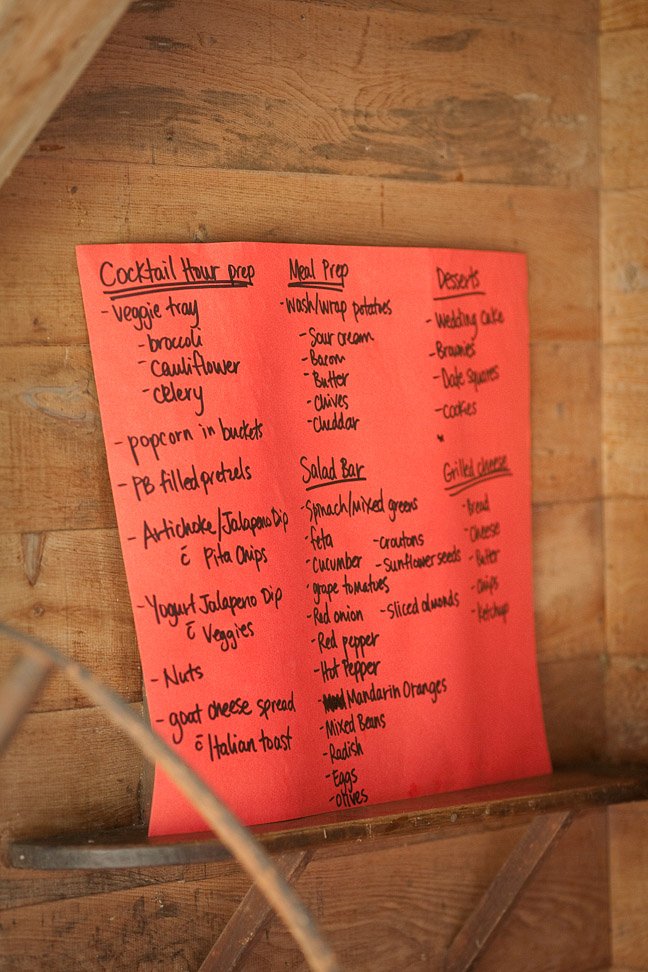 Cocktail Hour prep
- Veggie tray
- broccoli
- cauliflower
- celery
- popcorn in buckets
- PB filled pretzels
- Artichoke/Jalapeno Dip
c̄ Pita Chips
- Yogurt Jalapeno Dip
c̄ Veggies
- Nuts
- goat cheese spread
c̄ Italian toast
Meal Prep
- Wash/wrap potatoes
- Sour cream
- Bacon
- Butter
- Chives
- Cheddar
Salad Bar
- Spinach/mixed greens
- feta
- cucumber
- grape tomatoes
- Red onion
- Red pepper
- Hot Pepper
- Mandarin Oranges
- Mixed Beans
- Radish
- Eggs
- Olives
- croutons
- Sunflower seeds
- Sliced almonds
Desserts
- Wedding cake
- Brownies
- Date squares
- Cookies
Grilled cheese
- Bread
- Cheese
- Butter
- Chips
- Ketchup